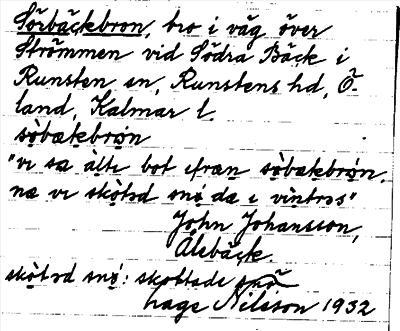 Sörbäckebron, bro i väg över
Strömmen vid Södra Bäck i
Runsten sn, Runstens hd, Ö-
land, Kalmar l.
sò̤bækebrø̤n
"vi sa àlti bot ifran sò̤bækebrø̤n,
næ vi skò̤təd snø̤ dæ i vìntrəs"
John Johansson,
Ålebäck.
skò̤təd snø̤: skottade snö
Hage Nilsson 1932